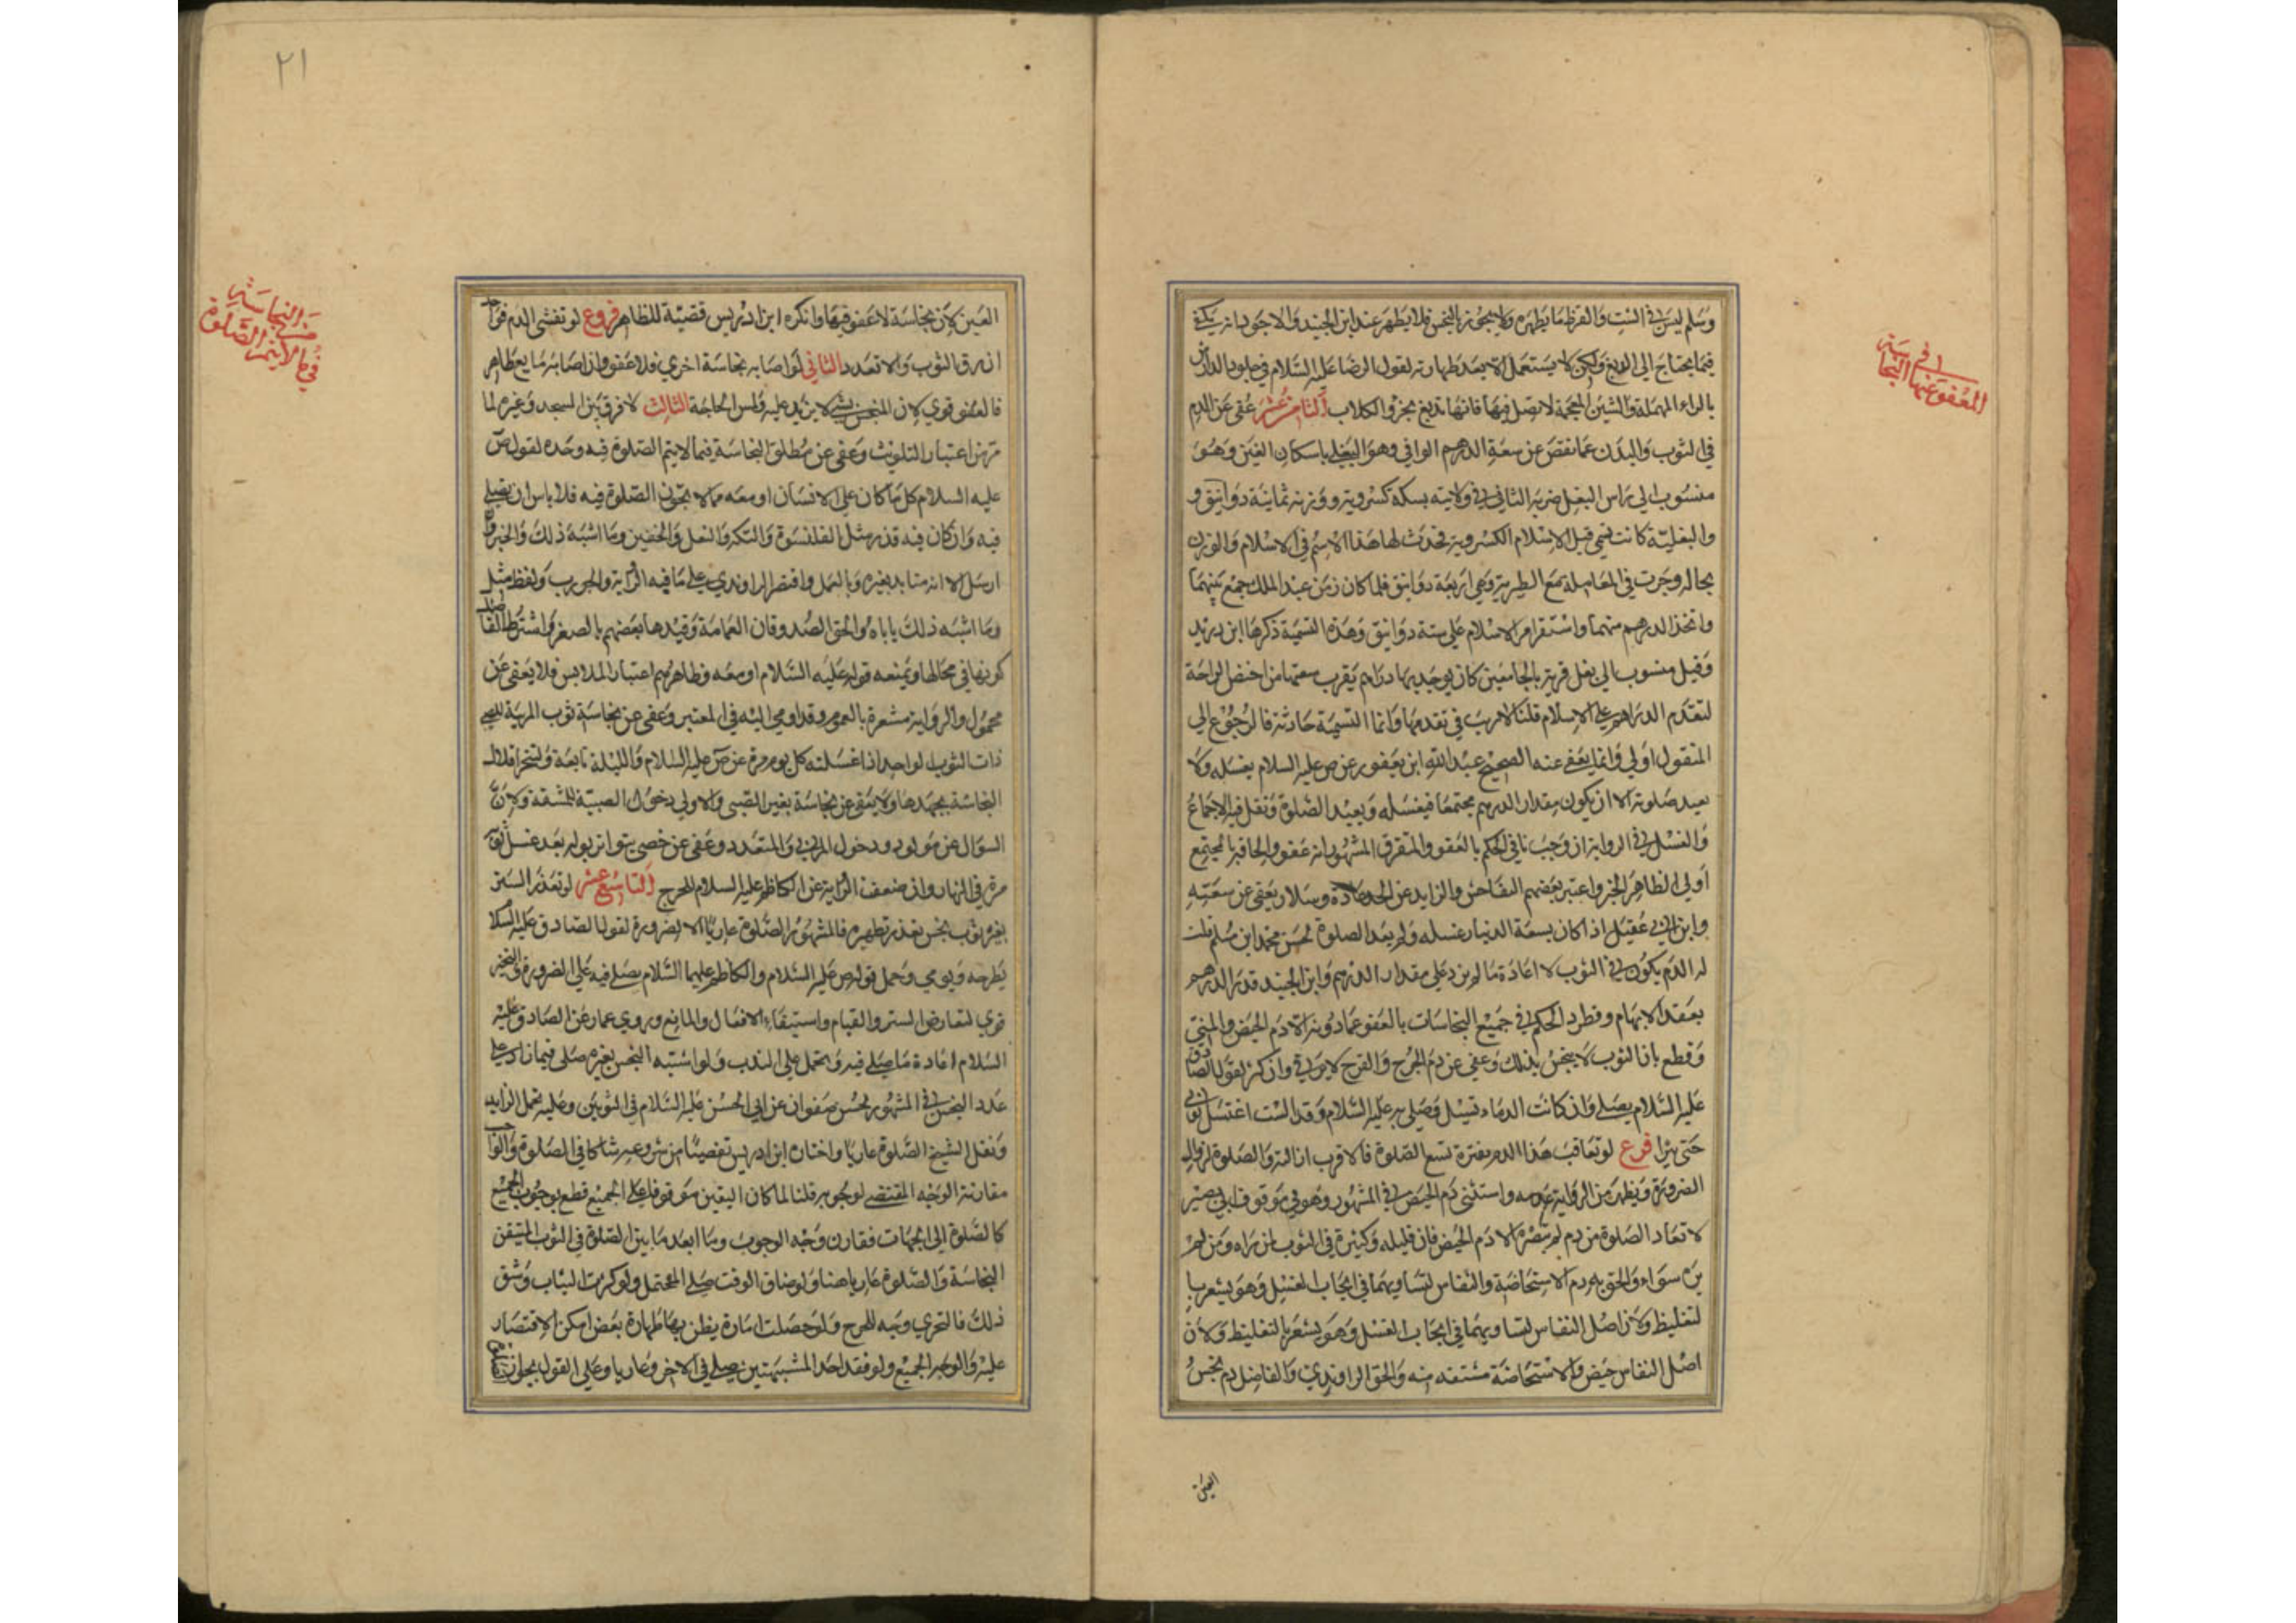 وسلم ليس في الشث والقرظ ما يطهره ولا يجوز بالنجس فلا يطهر عند ابن الجنيد والاجود انه يكفي
فيما يحتاج الى الدبغ ولكن لا يستعمل الا بعد طهارته لقول الرضا عليه السلام في جلود الدارش
بالراء المهملة والشين المعجمة لا تصل فيها فانها تدبغ بخرؤ الكلاب الثامن عشر عفى عن الدم
في الثوب والبدن عما نقص عن سعة الدرهم الوافي وهو البغلي باسكان الغين وهو
منسوب الى راس البغل ضربه الثاني في ولايته بسكه كسروية ووزنه ثمانية دوانيق و
والبغلية كانت تسمى قبل الاسلام الكسروية فحدث لها هذا الاسم في الاسلام والوزن
بحاله وجرت في المعاملة مع الطبرية وهي اربعة دوانيق فلما كان زمن عبد الملك جمع بينهما
واتخذ الدرهم منهما واستقر امر الاسلام على ستة دوانيق وهذه التسمية ذكرها ابن دريد
وقيل منسوب الى بغل قرية بالجامعين كان يوجد بها دراهم يقرب سعتها من اخمص الراحة
لتقدم الدراهم على الاسلام قلنا لا ريب في تقدمها وانما التسمية حادثة فالرجوع الى
المنقول اولى وانما يعفى عنه الصحيح عبد الله ابن يعفور عن ص عليه السلام يغسله ولا
يعيد صلوته الا ان يكون مقدار الدرهم مجتمعا فيغسله ويعيد الصلوة ونقل فيه الاجماع
والغسل في الرواية ان وجب نافى الحكم بالعفو والمتفرق المشهور انه عفو والحاقه بالمجتمع
اولى الظاهر الخبر واعتبر بعضهم التفاحش والزايد عن الحد عادة وسلار يعفى عن سعته
وابن ابي عقيل اذا كان بسعة الدينار غسله ولم يعد الصلوة لحسن محمد ابن مسلم قلت
له الدم يكون في الثوب لا اعادة ما لم يزد على مقدار الدرهم وابن الجنيد قدر الدرهم
بعقد الابهام وفطرد الحكم في جميع النجاسات بالعفو عما دونه الا دم الحيض والمني
وقطع بان الثوب لا ينجس بذلك وعفى عن دم الجرح والقرح لا يرقى وان كثر لقول الصادق
عليه السلام يصلي وان كانت الدماء تسيل وصلى به عليه السلام وقد الست اغتسل ثوابي
حتى تبرا فرع لو تعاقب هذا الدم بفترة تسع الصلوة فالاقرب ازالته والصلوة لزوال
الضرورة ويظهر من الرواية عدمه واستثنى دم الحيض في المشهور وهو في موقوف ابي بصير
لا تعاد الصلوة من دم لم تبصره الا دم الحيض فان قليله وكثيرة في الثوب ان راه ومن لم
يره سواء والحق به دم الاستحاضة والنفاس لتساويهما في ايجاب الغسل وهو يشعر با
لتغليظ ولان اصل النفاس لتساويهما في ايجاب الغسل وهو يشعر بالتغليظ ولان
اصل النفاس حيض والاستحاضة مشتقه منه والحق الراوندي والفاضل دم نجس
العين
في سته
المعفو عنها النجا
٢١
العين لان نجاسة لا عفو فيها وانكره ابن ادريس قضية للظاهر فروع لو تفشى الدم فواحد
ان رق الثوب والا تعدد الثاني لو اصابه نجاسة اخرى فلا عفو وان اصابه مايع طاهر
فالعفو قوي لان المنجس بشي لا يزيد عليه ولمس الحاجة الثالث لا فرق بين المسجد وغيره لما
مر من اعتبار التلويث وعفى عن مطلق النجاسة فيما لا يتم الصلوة فيه وحده لقول ص
عليه السلام كل ما كان على الانسان او معه مما لا تجوز الصلوة فيه فلا باس ان يصلي
فيه وان كان فيه قذر مثل القلنسوة والتكة والنعل والخفين وما اشبه ذلك والخبر وان
ارسل الا انه متايد بغيره وبالعمل واقتصر الراوندي على ما فيه الراية والجورب ولفظ مثل
وما اشبه ذلك ياباه والحق الصدوقان العمامة وقيدها بعضهم بالصغر واشترط الفاضل
كونها في محالها ويمنعه قوله عليه السلام او معه وظاهرهم اعتبار الملابس فلا يعفى عن
محمول والرواية مشعرة بالعموم وقد اومى اليه في المعتبر وعفى عن نجاسة ثوب المربية للصبي
ذات الثوب الواحد اذا غسلته كل يوم مرة عن ص عليه السلام والليلة تابعة ولتتحر اقلال
النجاسة بجهدها ولا يتقى عن نجاسة بغير الصبي والاولى دخول الصبية للمشقة ولان
السوال عن مولود ودخول المربي والمتعدد وعفى عن خصي يتواتر بوله بعد غسل ثوبه
مرة في النهار وان ضعف الراية عن الكاظم عليه السلام للحرج التاسع عشر لو تعذر الستر
بغير ثوب نجس تعذر تطهيره فالمشهور الصلوة عاريا الا لضرورة لقول الصادق عليه السلا
يطرحه ويومي وحمل قول ص عليه السلام والكاظم عليهما السلام يصلي فيه على الضرورة والتخير
قوي لتعارض الستر والقيام واستيفاء الافعال والمانع وروى عمار عن الصادق عليه
السلام اعادة ما صلى فيه وتحمل على الندب ولو اشتبه النجس بغيره صلى فيما زاد على
عدد النجس في المشهور لحسن صفوان عن ابي الحسن عليه السلام في الثوبين وعليه تحمل الزايد
ونقل الشيخ الصلوة عاريا واختاره ابن ادريس تفصيا من شروعه شاكا في الصلوة والواجب
مقارنة الوجه المقتضي لوجوبه قلنا لما كان اليقين موقوفا على الجميع قطع بوجوب الجميع
كالصلوة الى الجهات فقارن وجه الوجوب وما ابعد ما بين الصلوة في الثوب المتيقن
النجاسة والصلوة عاريا هنا ولو ضاق الوقت صلى المحتمل ولو كثرت الثياب وشق
ذلك فالتحري وجه للحرج ولو حصلت امارة يظن بها طهارة بعض امكن الاقتصار
عليه والوجه الجميع ولو فقد احد المشتبهتين صلى في الاخر وعاريا وعلى القول بجوازه
من النجاسة
في ما لا يتم الصلوة